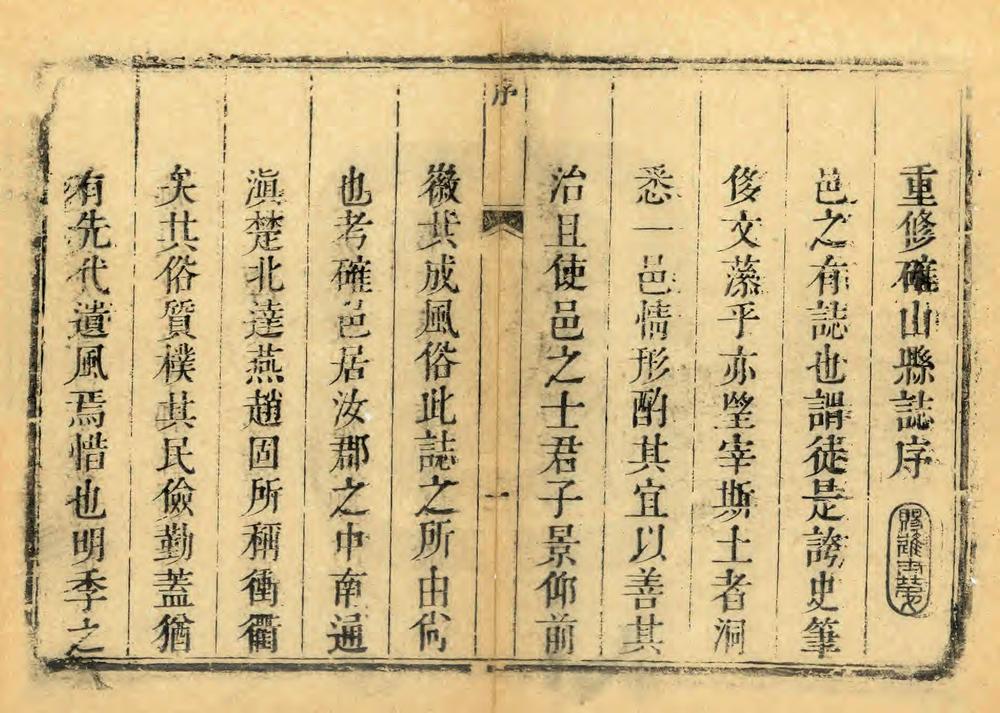 重修確山縣誌序
邑之有誌也謂徒是誇史筆
俊文藻乎亦望宰斯土者洞
悉一邑情形酌其宜以善其
治且使邑之士君子景仰前
序
一
徽共成風俗此誌之所由尚
也考確邑居汝郡之中南通
滇楚北達燕趙固所稱衝衢
矣其俗質樸其民儉勤蓋猶
有先代遺風焉惜也明季之